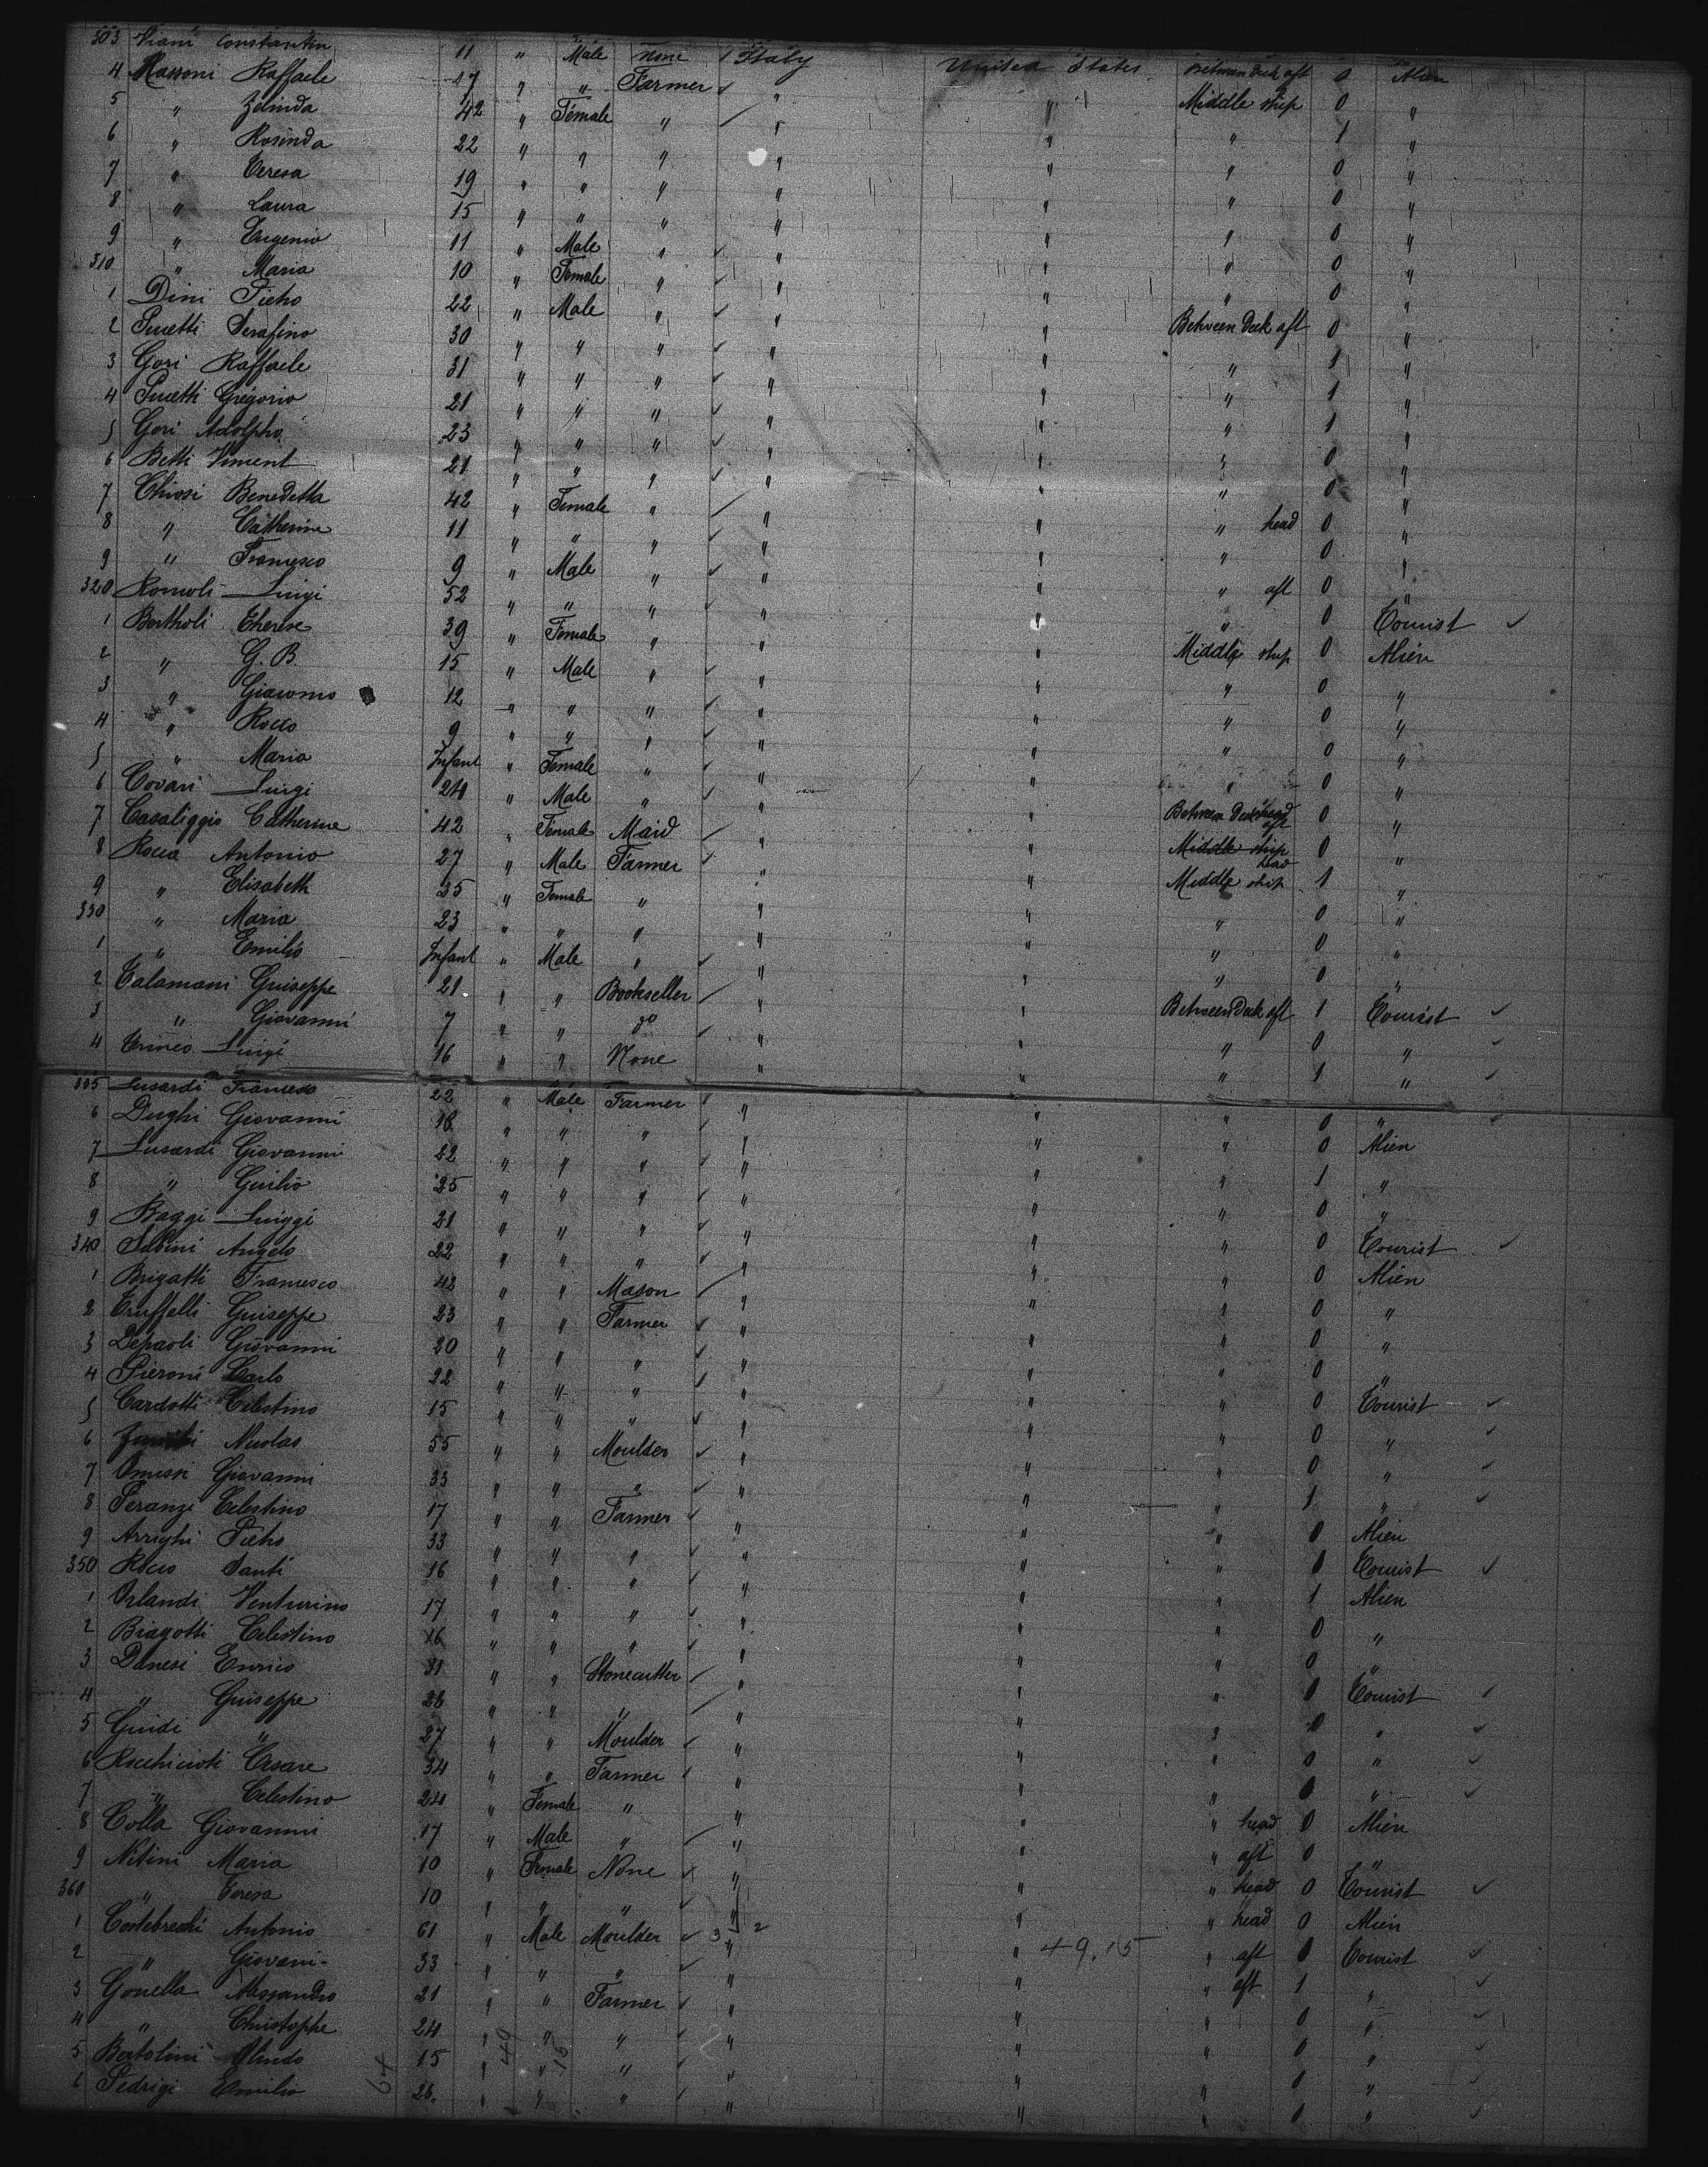 303 Viani Constantin 11 " Male none ✓ Italy United States Between Deck aft 0 Alien
4 Massoni Raffaele 47 " " Farmer ✓ " " Middle ship 0 "
5 " Zelinda 42 " Female " ✓ " " " 1 "
6 " Rosinda 22 " " " " " " 0 "
7 " Teresa 19 " " " " " " 0 "
8 " Laura 15 " " " " " " 0 "
9 " Eugenio 11 " Male " ✓ " " " 0 "
310 " Maria 10 " Female " ✓ " " " 0 "
1 Dini Pietro 22 " Male " ✓ " " Between Deck aft 0 "
2 Pucetti Serafino 30 " " " ✓ " " " 1 "
3 Gori Raffaele 31 " " " ✓ " " " 1 "
4 Pucetti Gregorio 21 " " " ✓ " " " 1 "
5 Gori Adolpho 23 " " " ✓ " " " 0 "
6 Betti Vincent 21 " " " ✓ " " " 0 "
7 Chiosi Benedetta 42 " Female " ✓ " " " head 0 "
8 " Catherine 11 " " " ✓ " " " 0 "
9 " Francesco 9 " Male " ✓ " " " aft 0 "
320 Romoli Luigi 52 " " " ✓ " " " 0 Tourist ✓
1 Bertholi Therese 39 " Female " " " Middle ship 0 Alien
2 " G. B. 15 " Male " ✓ " " " 0 "
3 " Giacomo 12 " " " ✓ " " " 0 "
4 " Rocco 9 " " " ✓ " " " 0 "
5 " Maria Infant " Female " ✓ " " " 0 "
6 Covari Luigi 24 " Male " ✓ " " Between Deck aft 0 "
7 Casaliggio Catherine 42 " Female Maid ✓ " " Middle ship head 0 "
8 Rocca Antonio 27 " Male Farmer ✓ " " Middle ship 1 "
9 " Elisabeth 25 " Female " " " " 0 "
330 " Maria 23 " " " " " " 0 "
1 " Emilio Infant " Male " ✓ " " " 0 "
2 Calamani Guiseppe 21 " " Bookseller ✓ " " Between Deck aft 1 Tourist ✓
3 " Giovanni 7 " " do ✓ " " " 0 " ✓
4 Trineo Luigi 16 " " None " " " 1 " ✓
335 Lusardi Francesco 22 " Male Farmer ✓ " " " 0 " ✓
6 Dughi Giovanni 18 " " " ✓ " " " 0 Alien
7 Lusardi Giovanni 22 " " " ✓ " " " 1 "
8 " Guilio 25 " " " ✓ " " " 0 "
9 Baggi Luiggi 21 " " " ✓ " " " 0 Tourist ✓
340 Sabini Angelo 22 " " " ✓ " " " 0 Alien
1 Brigatti Francesco 42 " " Mason ✓ " " " 0 "
2 Truffelli Guiseppe 23 " " Farmer ✓ " " " 0 "
3 Depaoli Giovanni 20 " " " ✓ " " " 0 "
4 Pieroni Carlo 22 " " " ✓ " " " 0 Tourist ✓
5 Cardotti Celestino 15 " " " ✓ " " " 0 " ✓
6 Nicolas 55 " " Moulder ✓ " " " 0 " ✓
7 Omessi Giovanni 33 " " " ✓ " " " 1 " ✓
8 Peranzi Celestino 17 " " Farmer ✓ " " " 0 Alien
9 Arrighi Pietro 33 " " " ✓ " " " 0 Tourist ✓
350 Rocco Santi 16 " " " ✓ " " " 1 Alien
1 Orlandi Venturino 17 " " " ✓ " " " 0 "
2 Biagotti Celestino 16 " " " ✓ " " " 0 "
3 Danesi Enrico 31 " " Stonecutter ✓ " " " 0 Tourist ✓
4 " Guiseppe 26 " " " ✓ " " " 0 " ✓
5 Guidi " 27 " " Moulder ✓ " " " 0 " ✓
6 Rocchicioti Cesare 34 " " Farmer ✓ " " " 0 " ✓
7 " Celestino 24 " Female " " " " head 0 Alien
8 Colla Giovanni 17 " Male " ✓ " " " aft 0 "
9 Nitini Maria 10 " Female None ✓ " " " head 0 Tourist ✓
360 " Teresa 10 " " " ✓ " " " head 0 Alien
1 Cortebrechi Antonio 61 " Male Moulder ✓ 3 " 2 " 49.15 " aft 0 Tourist ✓
2 " Giovani 33 " " " ✓ " " " aft 1 " ✓
3 Gonella Alessandro 21 " " Farmer ✓ " " " 0 " ✓
4 " Christophe 24 " " " ✓ " " " 0 " ✓
5 Bertolini Olindo 15 " " " ✓ " " " 0 " ✓
6 Pedrigi Emilio 26 " " " ✓ " " " 0 " ✓
64 49 15